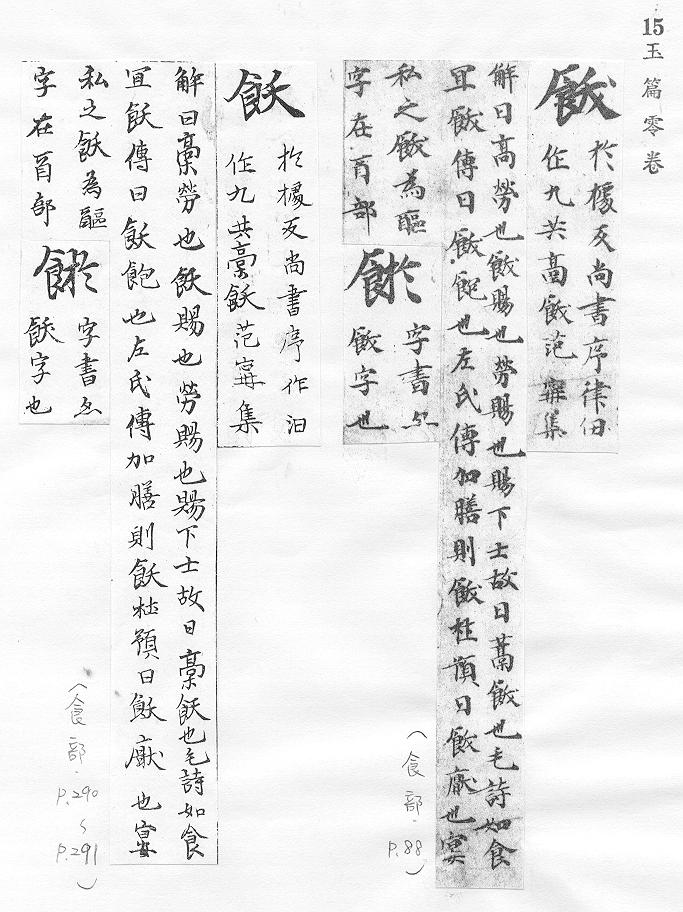 15
玉篇零卷
飫
於據反尚書序
作九共高飫范甯集
解曰高勞也飫賜也勞賜也賜下士故曰藁飫也毛詩如食
宜飫傳曰飫飽也左氏傳加膳則飫杜預曰飫厭也宴
私之飫為醧
字在酉部
字書亦
飫字也
(食部.P.88)
飫
於據反尚書序作汩
作九共槀飫范甯集
解曰槀勞也飫賜也勞賜也賜下士故曰槀飫也毛詩如食
宜飫傳曰飫飽也左氏傳加膳則飫杜預曰飫厭也宴
私之飫為醧
字在酉部
字書亦
飫字也
(食部.P.290~P.291)